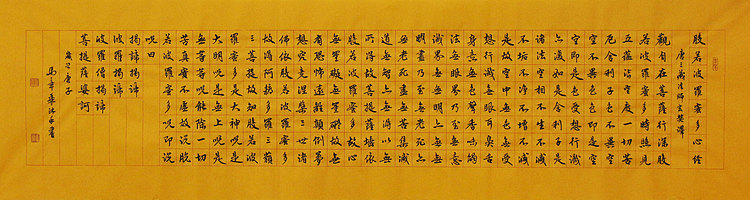 般若波羅蜜多心經
唐三藏法師玄奘譯
觀自在菩薩行深般
若波羅蜜多時照見
五蘊皆空度一切苦
厄舍利子色不異空
空不異色色即是空
空即是色受想行識
亦復如是舍利子是
諸法空相不生不滅
不垢不淨不增不減
是故空中無色無受
想行識無眼耳鼻舌
身意無色聲香味觸
法無眼界乃至無意
識界無無明亦無無
明盡乃至無老死亦
無老死盡無苦集滅
道無智亦無得以無
所得故菩提薩埵依
般若波羅蜜多故心
無罣礙無罣礙故無
有恐怖遠離顛倒夢
想究竟涅槃三世諸
佛依般若波羅蜜多
故得阿耨多羅三藐
三菩提故知般若波
羅蜜多是大神呪是
大明呪是無上呪是
無等等呪能除一切
苦真實不虛故說般
若波羅蜜多呪即說
呪曰
揭諦揭諦
波羅揭諦
波羅僧揭諦
菩提薩婆訶
歲次庚子